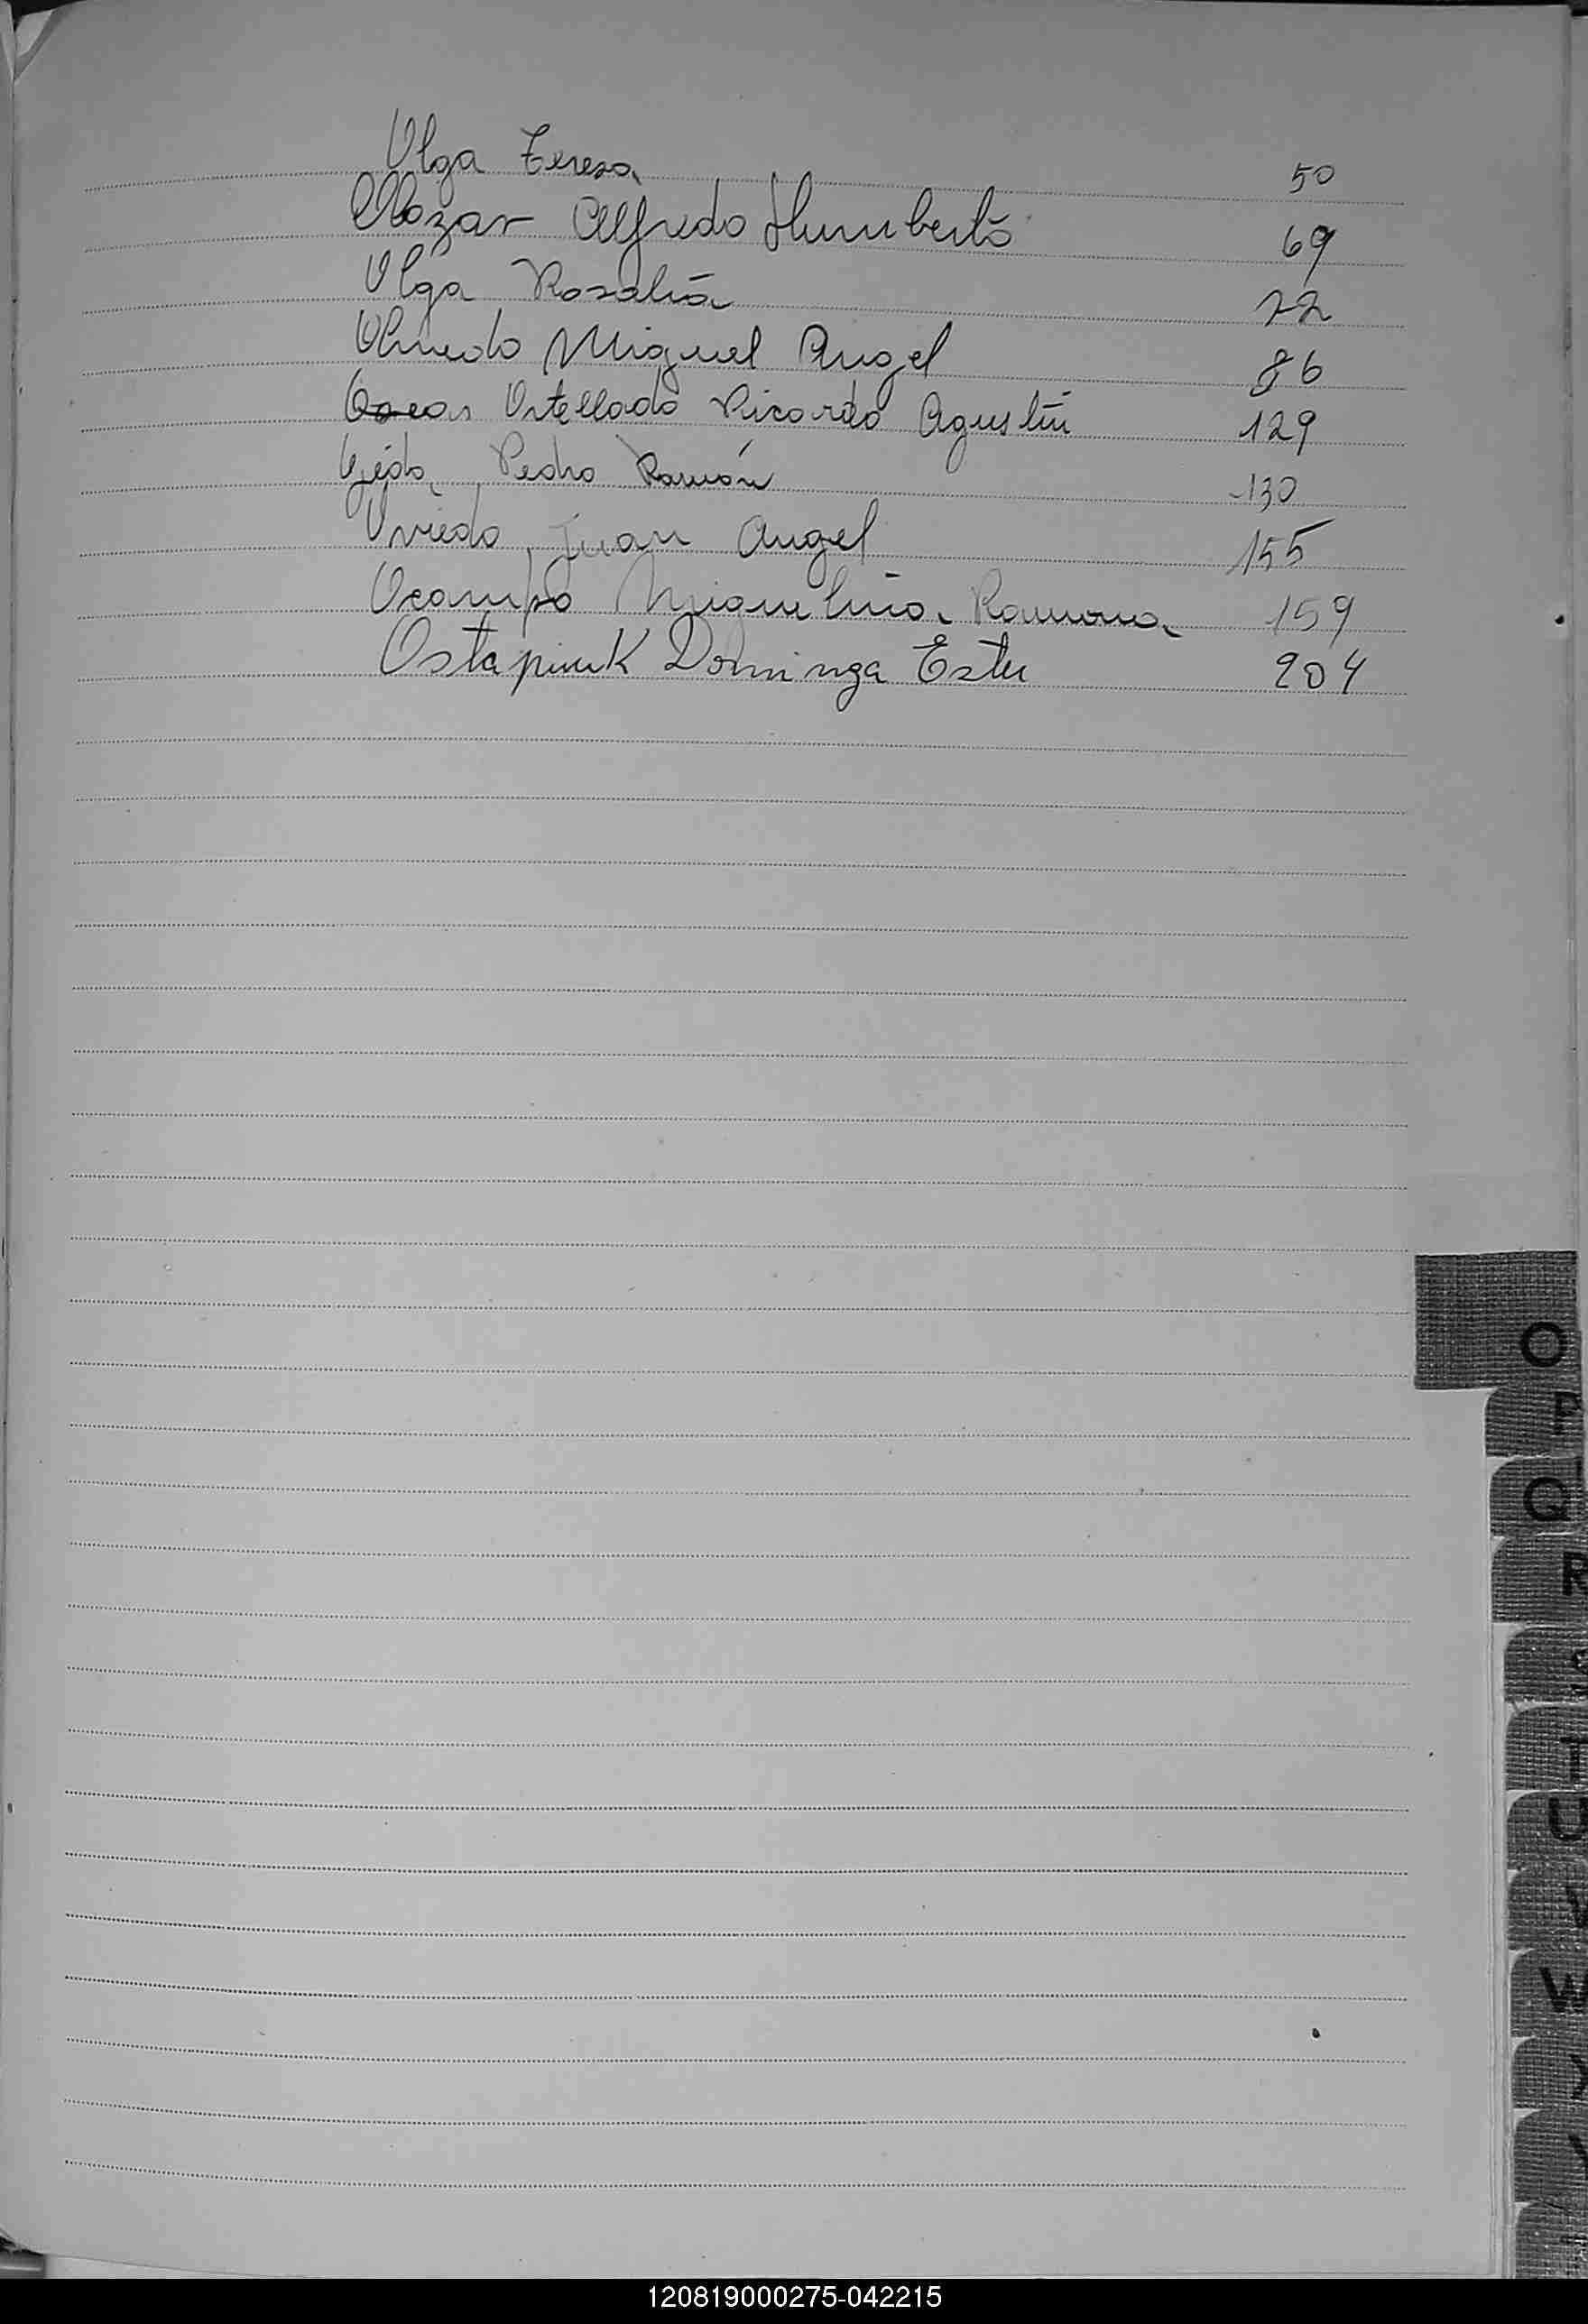 Olga Teresa 50
Olga Rosalia 72
Olmedo Miguel Angel 86
Ostellado Ricardo Agustín 129
Ojeda, Pedro Ramón 130
Oviedo, Juan Angel 155
Ocampo Miguelina Ramona 159
Ostapiuk Dominga Ester 204
Alfredo Humberto 69
O
P
Q
R
T
U
W
120819000275-042215